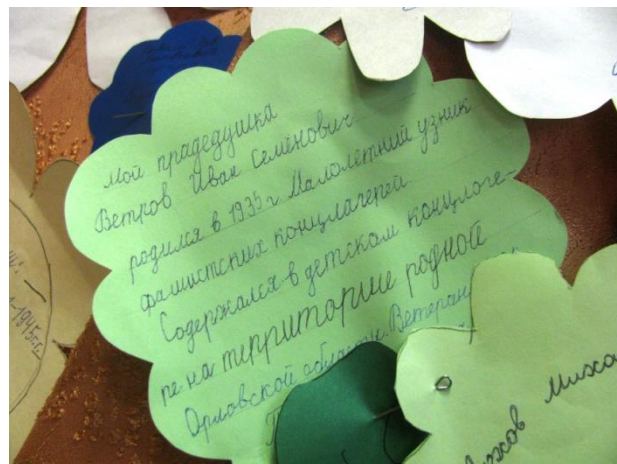 Мой прадедушка
Ветров Иван Семёнович
родился в 1935 г Малолетний узник
фашистских концлагерей.
Содержался в детском концлоге-
ре на территорие родной
Орловской области. Ветеран
-1945г.г.
Миха